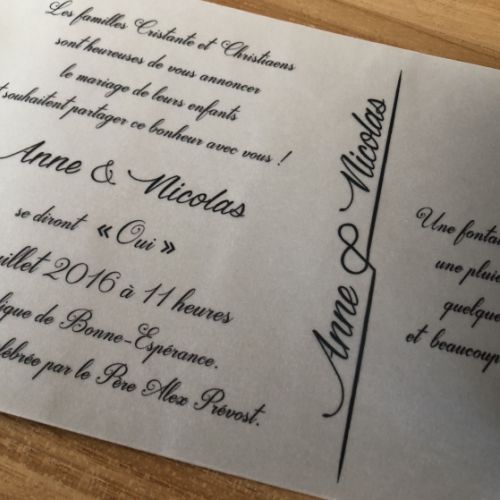 Les familles Cristante et Christiaens
sont heureuses de vous annoncer
le mariage de leurs enfants
souhaitent partager ce bonheur avec vous !
Anne & Nicolas
se diront « Oui »
uillet 2016 à 11 heures
ique de Bonne-Espérance.
lébrée par le Père Alex Prévost.
Anne & Nicolas
Une fonta
une pluie
quelque
et beaucoup